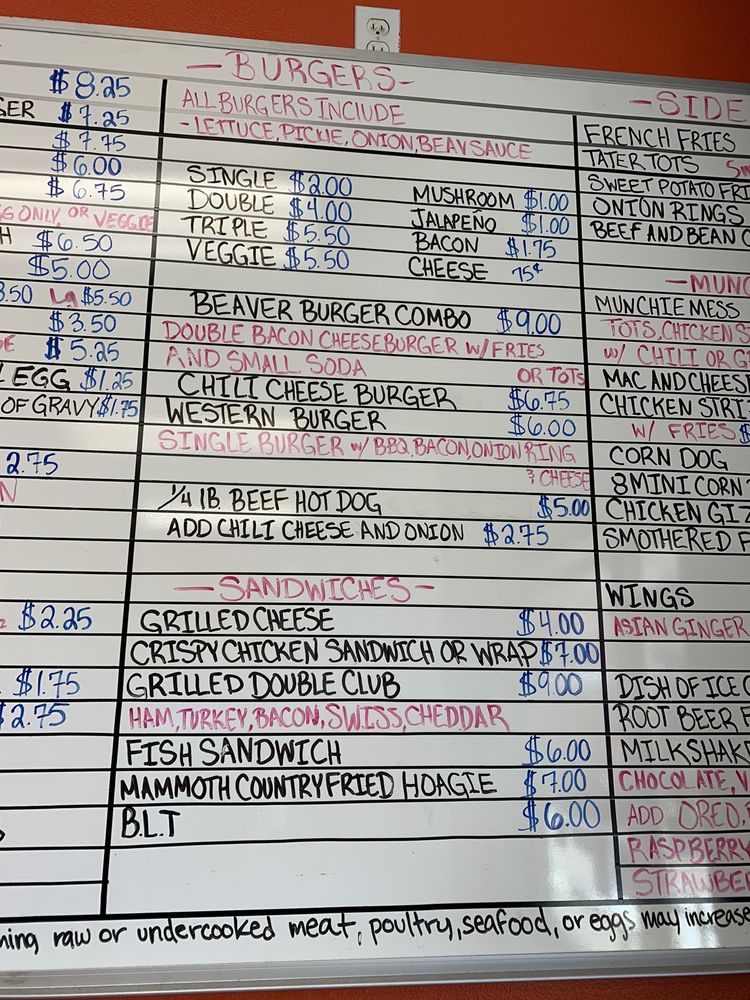 $8.25
$7.25
$7.75
$6.00
$6.75
ONLY, OR VEGGIE
$6.50
$5.00
La $5.50
$3.50
$5.25
EGG $1.25
OF GRAVY $1.75
2.75
$2.25
$1.75
2.75
- BURGERS -
ALL BURGERS INCLUDE
- LETTUCE, PICKLE, ONION, BEAV SAUCE
SINGLE $2.00
DOUBLE $4.00
TRIPLE $5.50
VEGGIE $5.50
MUSHROOM $1.00
JALAPEÑO $1.00
BACON $1.75
CHEESE 75¢
BEAVER BURGER COMBO $9.00
DOUBLE BACON CHEESEBURGER W/ FRIES
AND SMALL SODA OR TOTS
CHILI CHEESE BURGER $6.75
WESTERN BURGER $6.00
SINGLE BURGER W/ BBQ, BACON, ONION RING
& CHEESE
1/4 LB. BEEF HOT DOG $5.00
ADD CHILI CHEESE AND ONION $2.75
- SANDWICHES -
GRILLED CHEESE $4.00
CRISPY CHICKEN SANDWICH OR WRAP $7.00
GRILLED DOUBLE CLUB $9.00
HAM, TURKEY, BACON, SWISS, CHEDDAR
FISH SANDWICH $6.00
MAMMOTH COUNTRY FRIED HOAGIE $7.00
B.L.T $6.00
- SIDE
FRENCH FRIES
TATER TOTS
SWEET POTATO FRI
ONION RINGS
BEEF AND BEAN
- MUNC
MUNCHIE MESS
TOTS, CHICKEN S
W/ CHILI OR G
MAC AND CHEES
CHICKEN STRI
W/ FRIES $
CORN DOG
8 MINI CORN
CHICKEN GIZ
SMOTHERED F
WINGS
ASIAN GINGER
DISH OF ICE C
ROOT BEER F
MILKSHAK
CHOCOLATE, V
ADD OREO,
RASPBERRY
STRAWBE
raw or undercooked meat, poultry, seafood, or eggs may increase